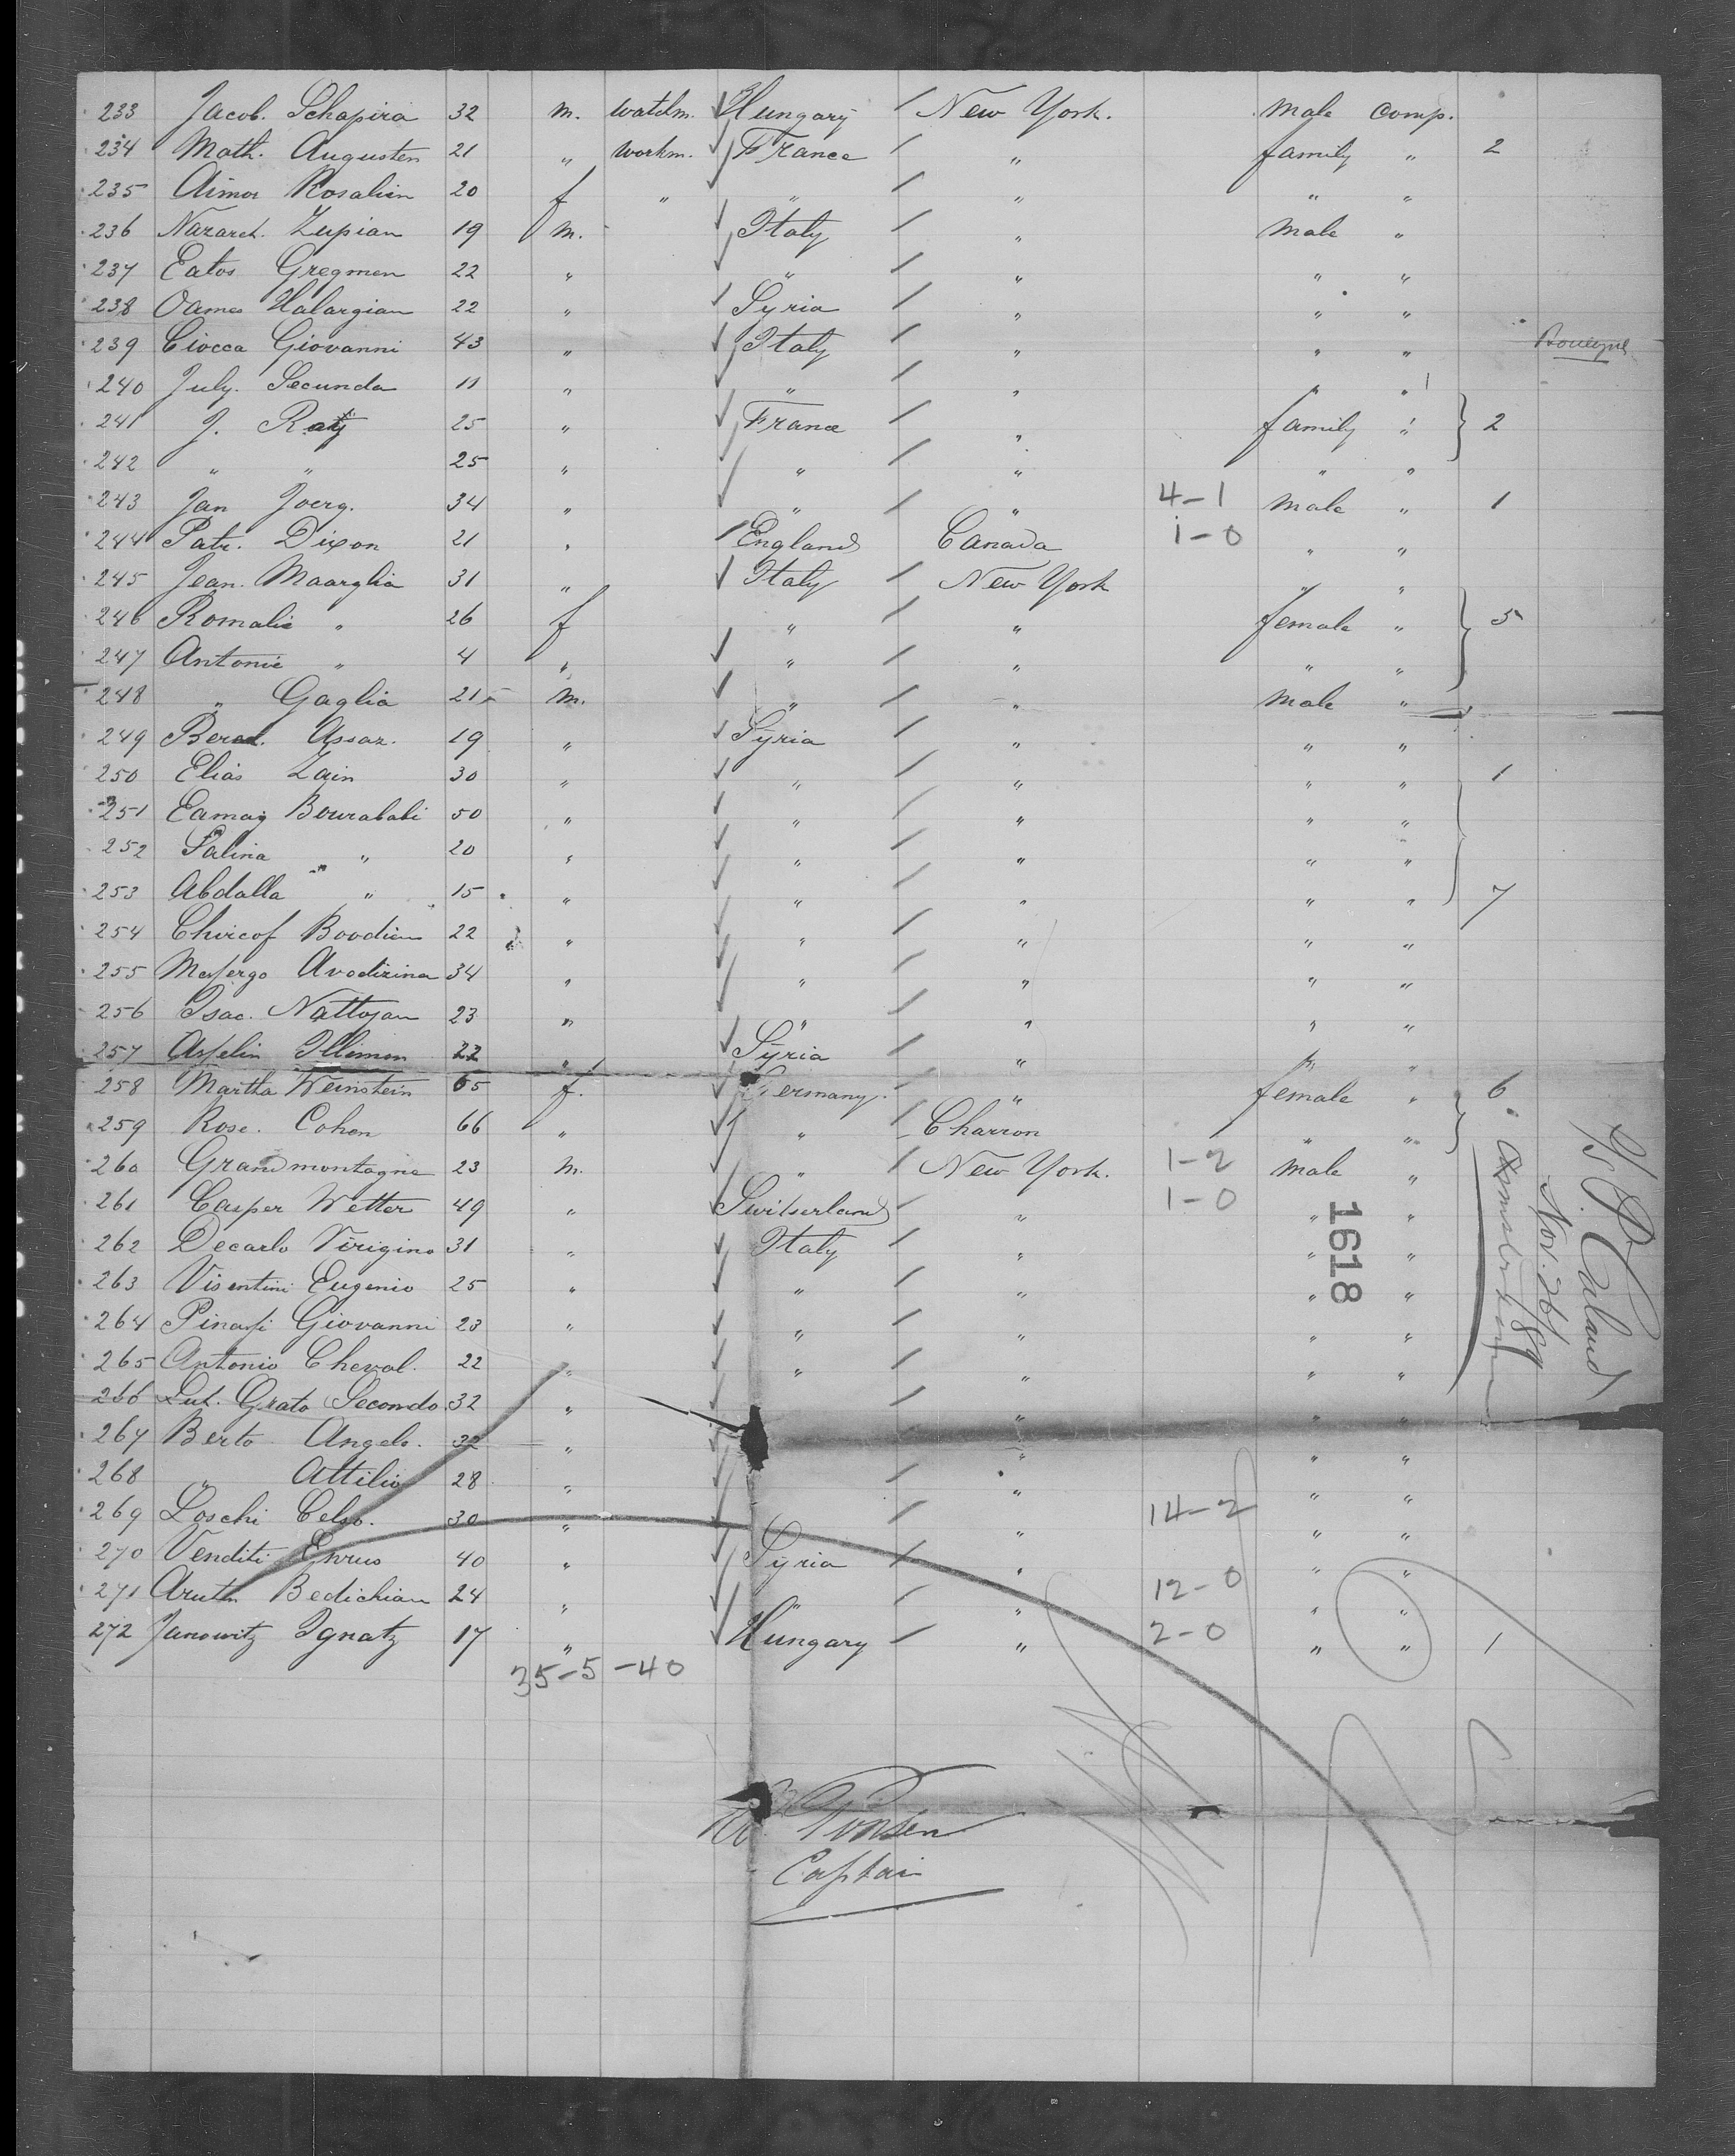 233 Jacob. Schapira 32 m. watchm. Hungary New York. male comp.
234 Math. Augusten 21 " workm. France " family " 2
235 Aimor Rosalien 20 f " " " " "
236 Nazaret. Zupian 19 m. Italy " male "
237 Eatos Gregmen 22 " " " " "
238 Oames Halargian 22 " Syria " " "
239 Ciocca Giovanni 43 " Italy " " "
240 July. Secunda 11 " " " " "
241 J. Raty 25 " France " family " 2
242 " " 25 " " " " "
243 Jan Joerg. 34 " " " 4-1 male " 1
244 Patr. Dixon 21 " England Canada 1-0 " "
245 Jean. Maarglia 31 " Italy New York " "
246 Romalie " 26 f " " female " 5
247 Antonie " 4 " " " " "
248 " Gaglia 21 m. " " male "
249 Berad. Assaz. 19 " Syria " " "
250 Elias Zain 30 " " " " " 1
251 Eamag Bourababi 50 " " " " "
252 Salina " 20 " " " " "
253 Abdalla " 15 " " " " " 7
254 Chircof Boodien 22 " " " " "
255 Mespergo Avodizina 34 " " " " "
256 Isac. Nattojan 23 " " " " "
257 Aspelin Illimon 22 " Syria " " "
258 Martha Weinstein 65 f. Germany. " female " 6
259 Rose. Cohen 66 " " Charron " "
260 Grandmontagne 23 m. " New York. 1-2 male "
261 Casper Wetter 49 " Switserland " 1-0 " "
262 Decarlo Virigino 31 " Italy " " "
263 Visentini Eugenio 25 " " " " "
264 Pinassi Giovanni 23 " " " " "
265 Antonio Cheval. 22 " " " " "
266 Lut. Grato Secondo 32 " " " "
267 Berto Angelo. 32 " " " "
268 " Attilio 28 " " " "
269 Loschi Celso. 30 " " 14-2 " "
270 Venditi Enrus 40 " Syria " " "
271 Aruth Bedichian 24 " " " 12-0 " "
272 Janowitz Ignatz 17 " Hungary " 2-0 " " 1
35-5-40
1618
S/S P. Caland
Nov. 26/89
Amsterdam
Ponsen
Captain